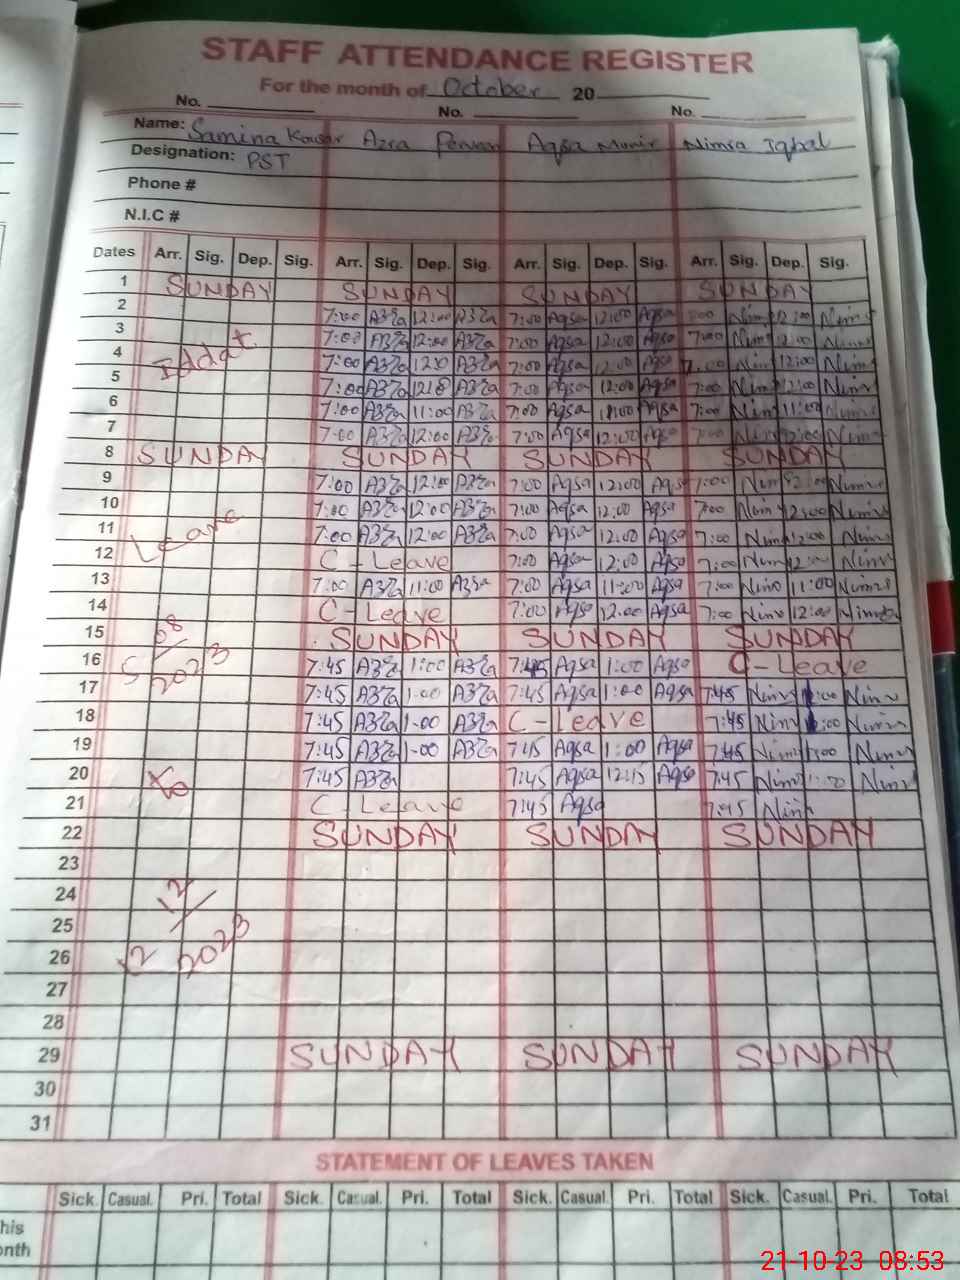 STAFF ATTENDANCE REGISTER
For the month of October 20
No. No. No.
Name: Samina Kousar Azra Perveen Aqsa Munir Nimra Iqbal
Designation: PST
Phone #
N.I.C #
Dates Arr. Sig. Dep. Sig. Arr. Sig. Dep. Sig. Arr. Sig. Dep. Sig. Arr. Sig. Dep. Sig.
1 SUNDAY SUNDAY SUNDAY SUNDAY
2 7:00 Azra 12:00 Azra 7:00 Aqsa 12:00 Aqsa Nim 12:00 Nim
3 7:00 Azra 12:00 Azra 7:00 Aqsa 12:00 Aqsa 7:00 Nim 12:00 Nim
4 Iddat 7:00 Azra 12:00 Azra 7:00 Aqsa 12:00 Aqsa 7:00 Nim 12:00 Nim
5 7:00 Azra 12:00 Azra 7:00 Aqsa 12:00 Aqsa 7:00 Nim 12:00 Nim
6 7:00 Azra 11:00 Azra 7:00 Aqsa 11:00 Aqsa 7:00 Nim 11:00 Nim
7 7:00 Azra 12:00 Azra 7:00 Aqsa 12:00 Aqsa 7:00 Nim 12:00 Nim
8 SUNDAY SUNDAY SUNDAY SUNDAY
9 7:00 Azra 12:00 Azra 7:00 Aqsa 12:00 Aqsa 7:00 Nim 12:00 Nim
10 7:00 Azra 12:00 Azra 7:00 Aqsa 12:00 Aqsa 7:00 Nim 12:00 Nim
11 Leave 7:00 Azra 12:00 Azra 7:00 Aqsa 12:00 Aqsa 7:00 Nim 12:00 Nim
12 C-Leave 7:00 Aqsa 12:00 Aqsa 7:00 Nim 12:00 Nim
13 7:00 Azra 11:00 Azra 7:00 Aqsa 11:00 Aqsa 7:00 Nim 11:00 Nim
14 C-Leave 7:00 Aqsa 12:00 Aqsa 7:00 Nim 12:00 Nimra
15 08 SUNDAY SUNDAY SUNDAY
16 5 2023 7:45 Azra 1:00 Azra 7:45 Aqsa 1:00 Aqsa C-Leave
17 7:45 Azra 1-00 Azra 7:45 Aqsa 1:00 Aqsa 7:45 Nim 1:00 Nim
18 7:45 Azra 1-00 Azra C-Leave 7:45 Nim 1:00 Nim
19 7:45 Azra 1-00 Azra 7:45 Aqsa 1:00 Aqsa 7:45 Nim 1:00 Nim
20 To 7:45 Azra 7:45 Aqsa 12:15 Aqsa 7:45 Nim 1:00 Nim
21 C-Leave 7:45 Aqsa 7:45 Nim
22 SUNDAY SUNDAY SUNDAY
23
24 12
25
26 12 2023
27
28
29 SUNDAY SUNDAY SUNDAY
30
31
STATEMENT OF LEAVES TAKEN
Sick. Casual. Pri. Total Sick. Casual. Pri. Total Sick. Casual. Pri. Total Sick. Casual. Pri. Total
his
onth
21-10-23 08:53